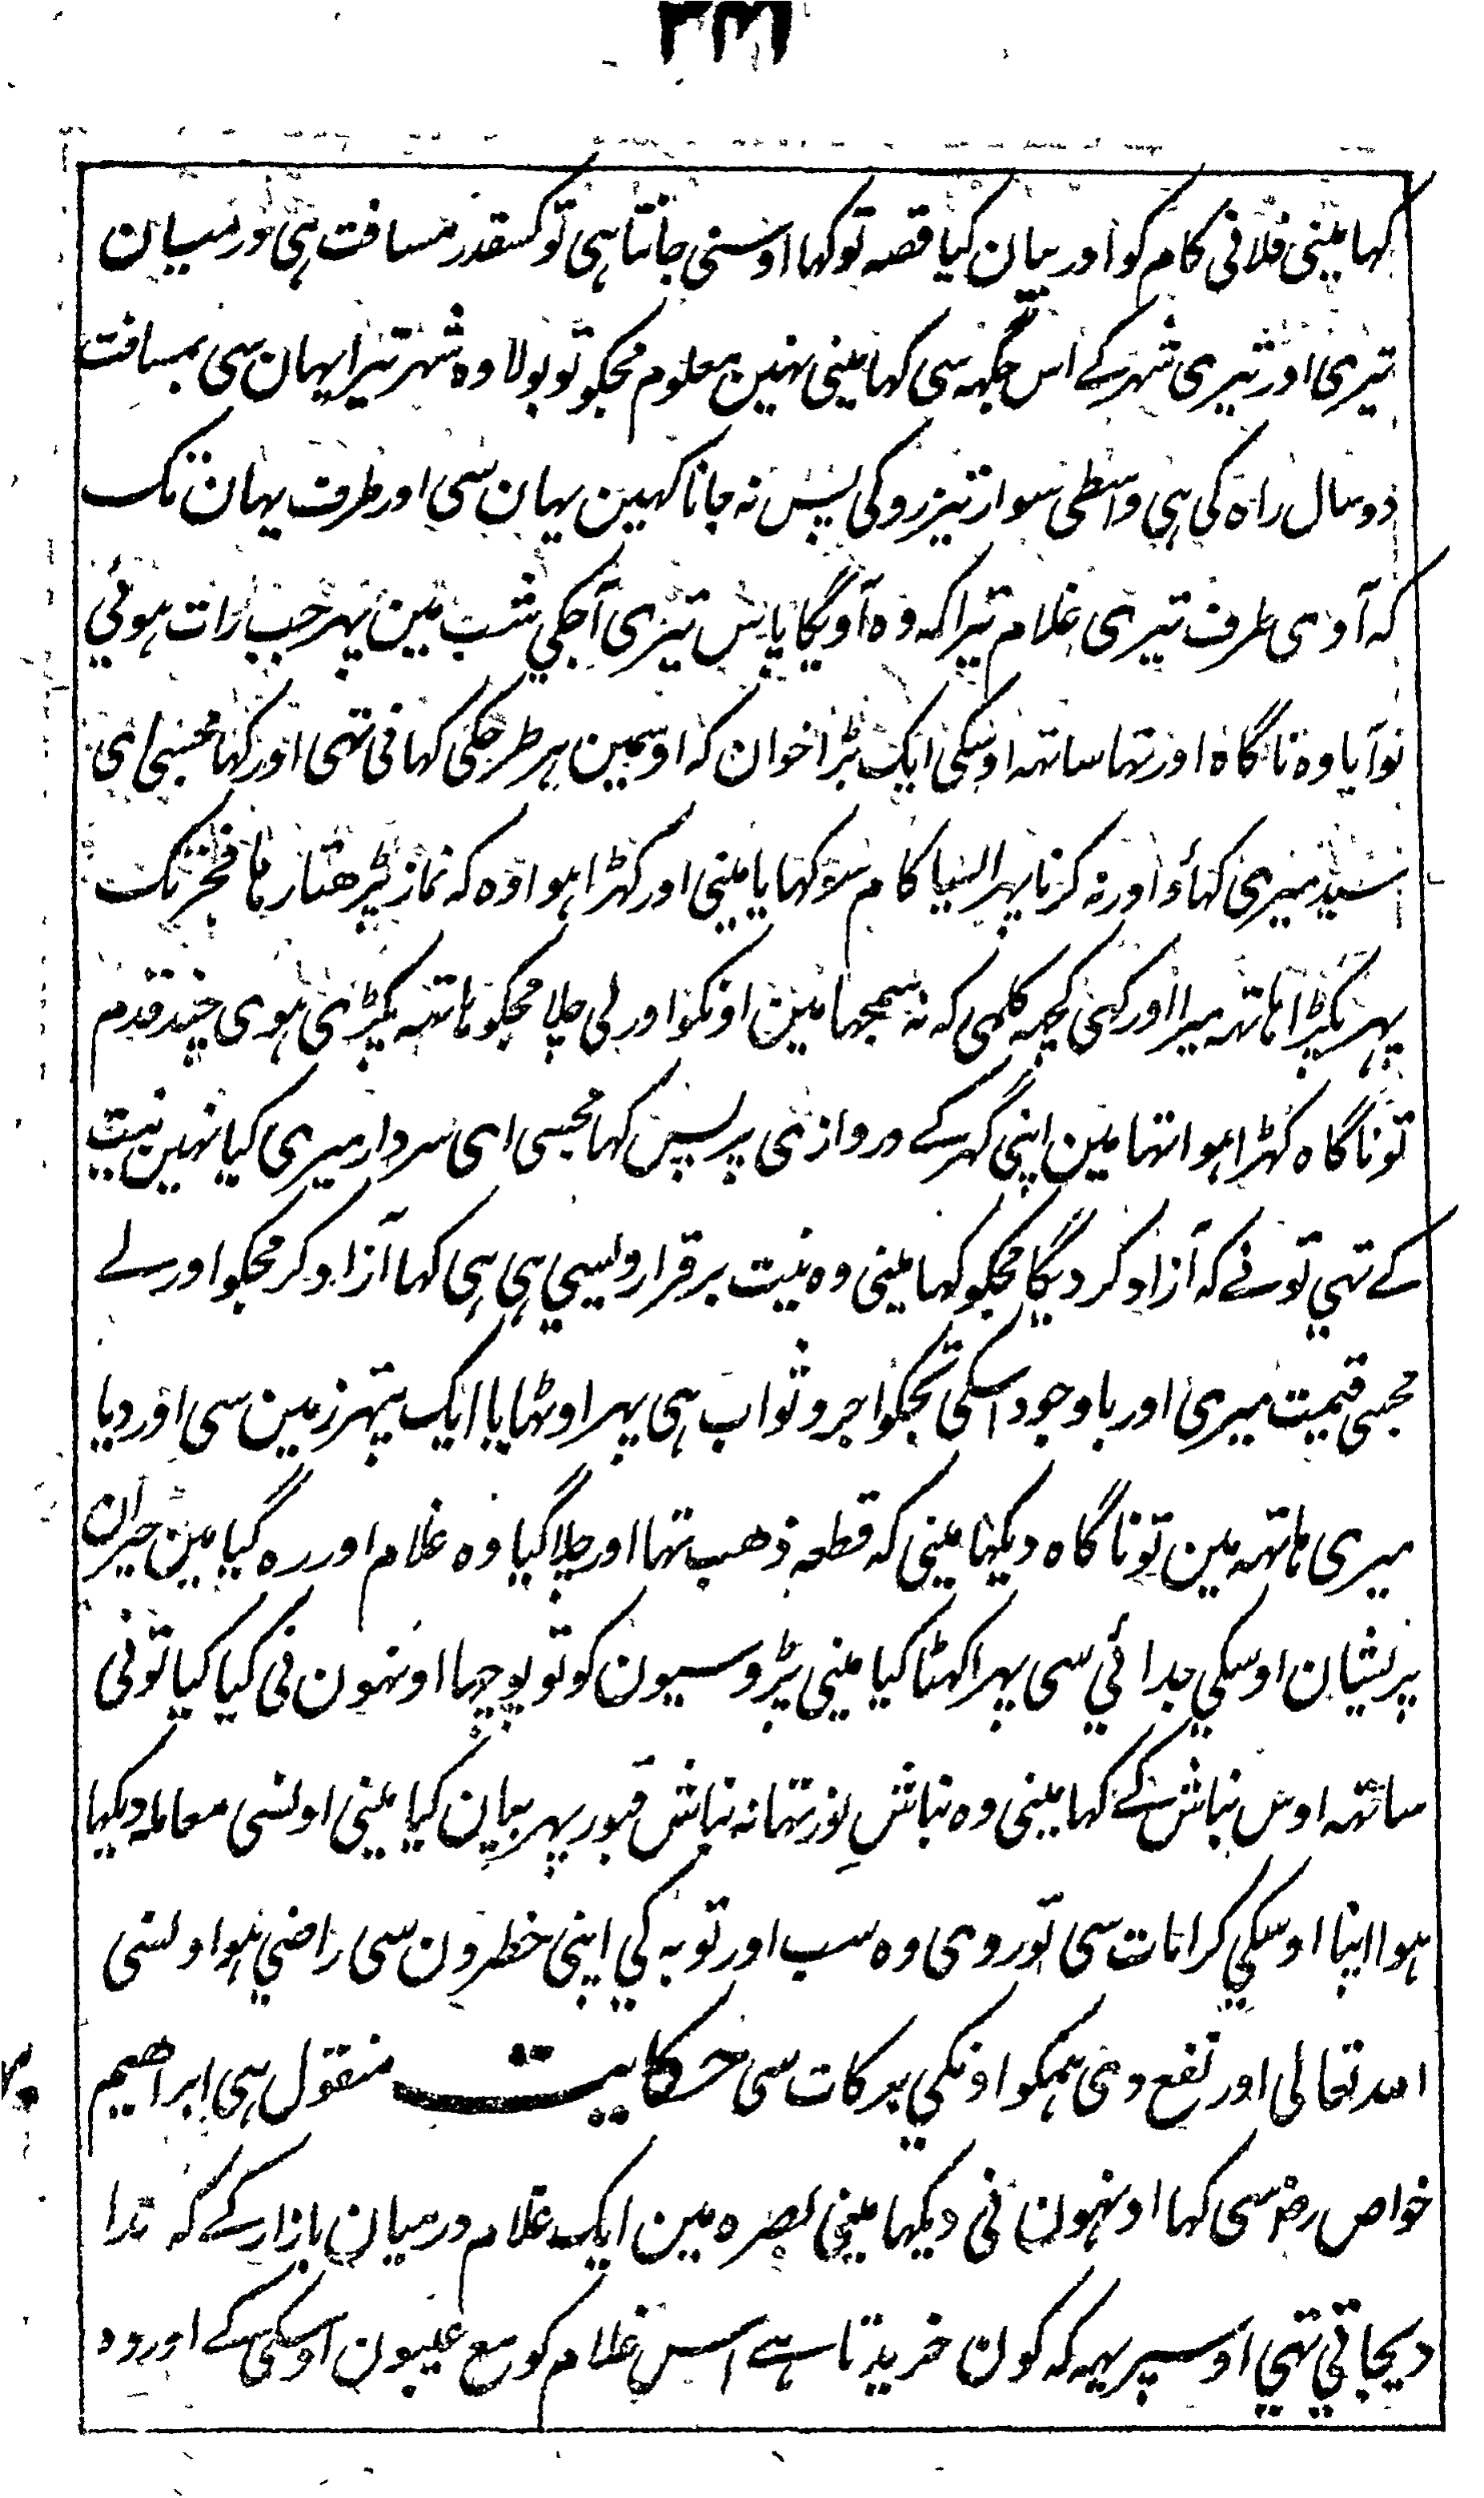 کہا مینی فلانی کام کو اور بیان کیا قصہ تو کہا اوسنی جانتا ہی تو کسقدر مسافت ہی درمیان
تیری اور تیری شہر کے اس جگہہ سی کہا مینی نہین معلوم مجکو تو بولا وہ شہر تیرا یہان سی بمسافت
دو سال راہ کی ہی واسطی سوار تیز رو کی پس نہ جانا کہین یہان سی اور طرف یہان تک
کہ آوی طرف تیری غلام تیرا کہ وہ آویگا پاس تیری آجکی شب مین پہر جب رات ہوئی
تو آیا وہ ناگاہ اور تہا ساتہہ اوسکی ایک بڑا خوان کہ اوسمین ہر طرحکی کہانی تہی اور کہا مجہسی ای
سید میری کہاؤ اور نہ کرنا پہر ایسا کام سو کہایا مینی اور کہڑا ہوا وہ کہ نماز پڑھتا رہا فجر تک
پہر پکڑا ہاتہہ میرا اور کہی کچہہ کلمی کہ نہ سمجہا مین اونکو اور لی چلا مجکو ہاتہہ پکڑی ہوی چند قدم
تو ناگاہ کہڑا ہوا تہا مین اپنی گہر کے دروازی پر پس کہا مجہسی ای سردار میری کیا نہین نیت
کے تہی تو نے کہ آزاد کر دیگا مجکو کہا مینی وہ نیت برقرار ویسی ہی ہی کہا آزاد کر مجکو اور لے
مجہسی قیمت میری اور باوجود اسکی تجکو اجر و ثواب ہی پہر اوٹہایا ایک پتہر زمین سی اور دیا
میری ہاتہہ مین تو ناگاہ دیکہا مینی کہ قطعہ ذھب تہا اور چلا گیا وہ غلام اور رہ گیا مین حیران
پریشان اوسکی جدائی سی پہر اکہٹا کیا مینی پڑوسیون کو تو پوچہا اونہون نی کیا کیا تو نی
ساتہہ اوس نباش کے کہا مینی وہ نباشِ نور تہا نہ نباش قبور پہر بیان کیا مینی اونسی معاملہ دیکہا
ہوا اپنا اوسکی کرامات سی تو روی وہ سب اور توبہ کی اپنی خطرون سی راضی ہوا ونسی
اللہ تعالی اور نفع دی ہمکو اونکی برکات سی حکایت منقول ہی ابراھیم
خواص رض سی کہا اونہون نی دیکہا مینی بصرہ مین ایک غلام درمیان بازار کے کہ ندا
دیجاتی تہی اوسپر یہہ کہ کون خریدتا ہے اس غلام کو مع عیبون اوسکی کے اور وہ